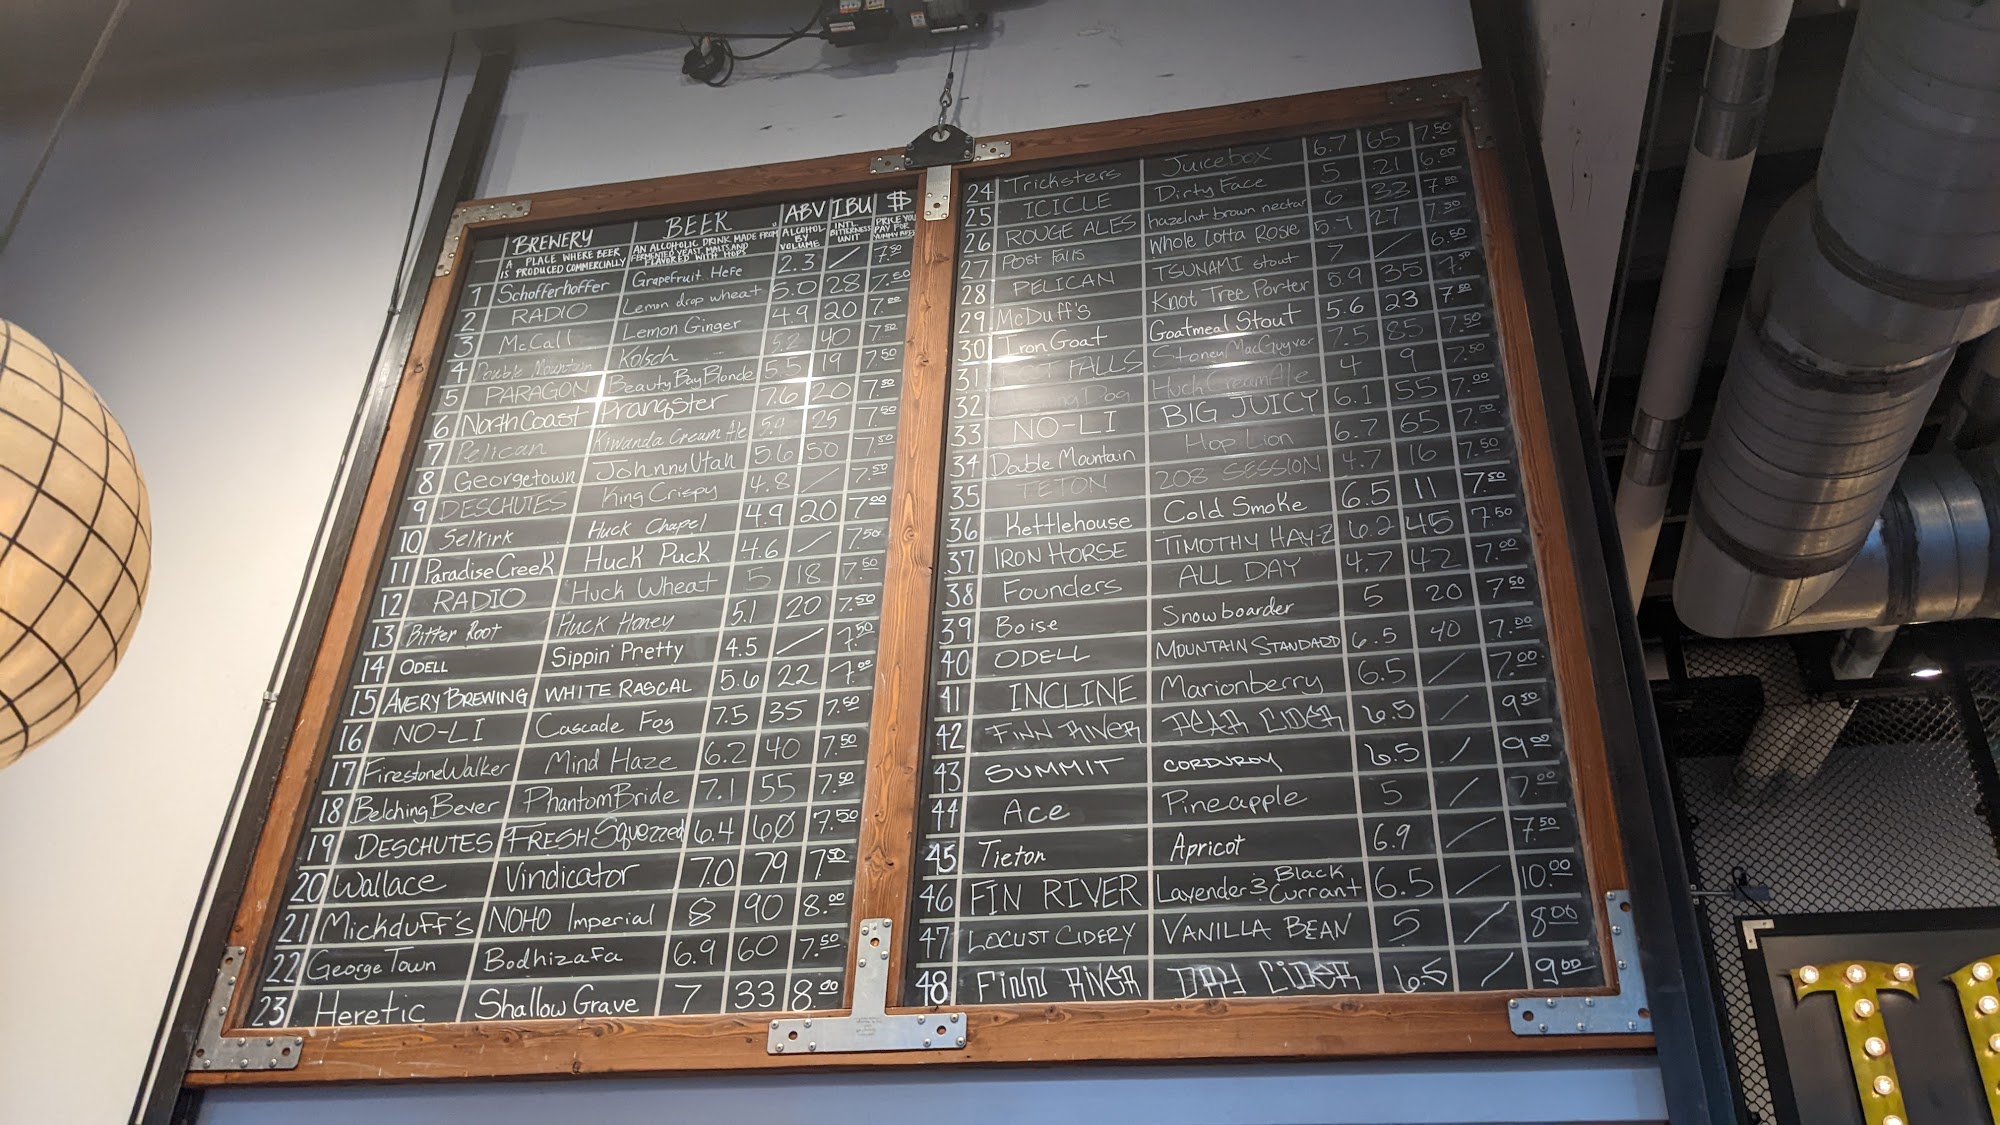 BREWERY BEER ABV IBU $
A PLACE WHERE BEER IS PRODUCED COMMERCIALLY AN ALCOHOLIC DRINK MADE FROM FERMENTED YEAST, MALTS AND FLAVORED WITH HOPS ALCOHOL BY VOLUME INTL. BITTERNESS UNIT PRICE YOU PAY FOR YUMMY BEER
1 Schofferhoffer Grapefruit Hefe 2.3 / 7.50
2 RADIO Lemon drop wheat 5.0 28 7.50
3 McCall Lemon Ginger 4.9 20 7.00
4 Double Mountain Kölsch 5.2 40 7.50
5 PARAGON Beauty Bay Blonde 5.5 19 7.50
6 North Coast Pranqster 7.6 20 7.50
7 Pelican Kiwanda Cream Ale 5.4 25 7.50
8 Georgetown Johnny Utah 5.6 50 7.50
9 DESCHUTES King Crispy 4.8 / 7.50
10 Selkirk Huck Chapel 4.9 20 7.00
11 Paradise Creek Huck Puck 4.6 / 7.50
12 RADIO Huck Wheat 5 18 7.50
13 Bitter Root Huck Honey 5.1 20 7.50
14 ODELL Sippin' Pretty 4.5 / 7.50
15 AVERY BREWING WHITE RASCAL 5.6 22 7.00
16 NO-LI Cascade Fog 7.5 35 7.50
17 Firestone Walker Mind Haze 6.2 40 7.50
18 Belching Bever Phantom Bride 7.1 55 7.50
19 DESCHUTES FRESH Squezzed 6.4 60 7.50
20 Wallace Vindicator 7.0 79 7.50
21 Mickduff's NOHO Imperial 8 90 8.00
22 George Town Bodhizafa 6.9 60 7.50
23 Heretic Shallow Grave 7 33 8.00
24 Tricksters Juicebox 6.7 65 7.50
25 ICICLE Dirty Face 5 21 6.00
26 ROUGE ALES hazelnut brown nectar 6 33 7.50
27 Post falls Whole Lotta Rosie 5.4 27 7.50
28 PELICAN TSUNAMI stout 7 / 6.50
29 McDuff's Knot Tree Porter 5.9 35 7.50
30 Iron Goat Goatmeal Stout 5.6 23 7.50
31 FALLS Stoney MacGuyver 7.5 85 7.50
32 Dog Huck Cream Ale 4 9 7.50
33 NO-LI BIG JUICY 6.1 55 7.00
34 Double Mountain Hop Lion 6.7 65 7.00
35 TETON 208 SESSION 4.7 16 7.50
36 Kettlehouse Cold Smoke 6.5 11 7.50
37 IRON HORSE TIMOTHY HAY-Z 6.2 45 7.50
38 Founders ALL DAY 4.7 42 7.00
39 Boise Snowboarder 5 20 7.50
40 ODELL MOUNTAIN STANDARD 6.5 40 7.00
41 INCLINE Marionberry 6.5 / 7.00
42 FINN RIVER PEAR CIDER 6.5 / 9.50
43 SUMMIT CORDUROY 6.5 / 9.00
44 Ace Pineapple 5 / 7.00
45 Tieton Apricot 6.9 / 7.50
46 FIN RIVER Lavender & Black Currant 6.5 / 10.00
47 LOCUST CIDERY VANILLA BEAN 5 / 8.00
48 FINN RIVER DRY CIDER 6.5 / 9.00
T